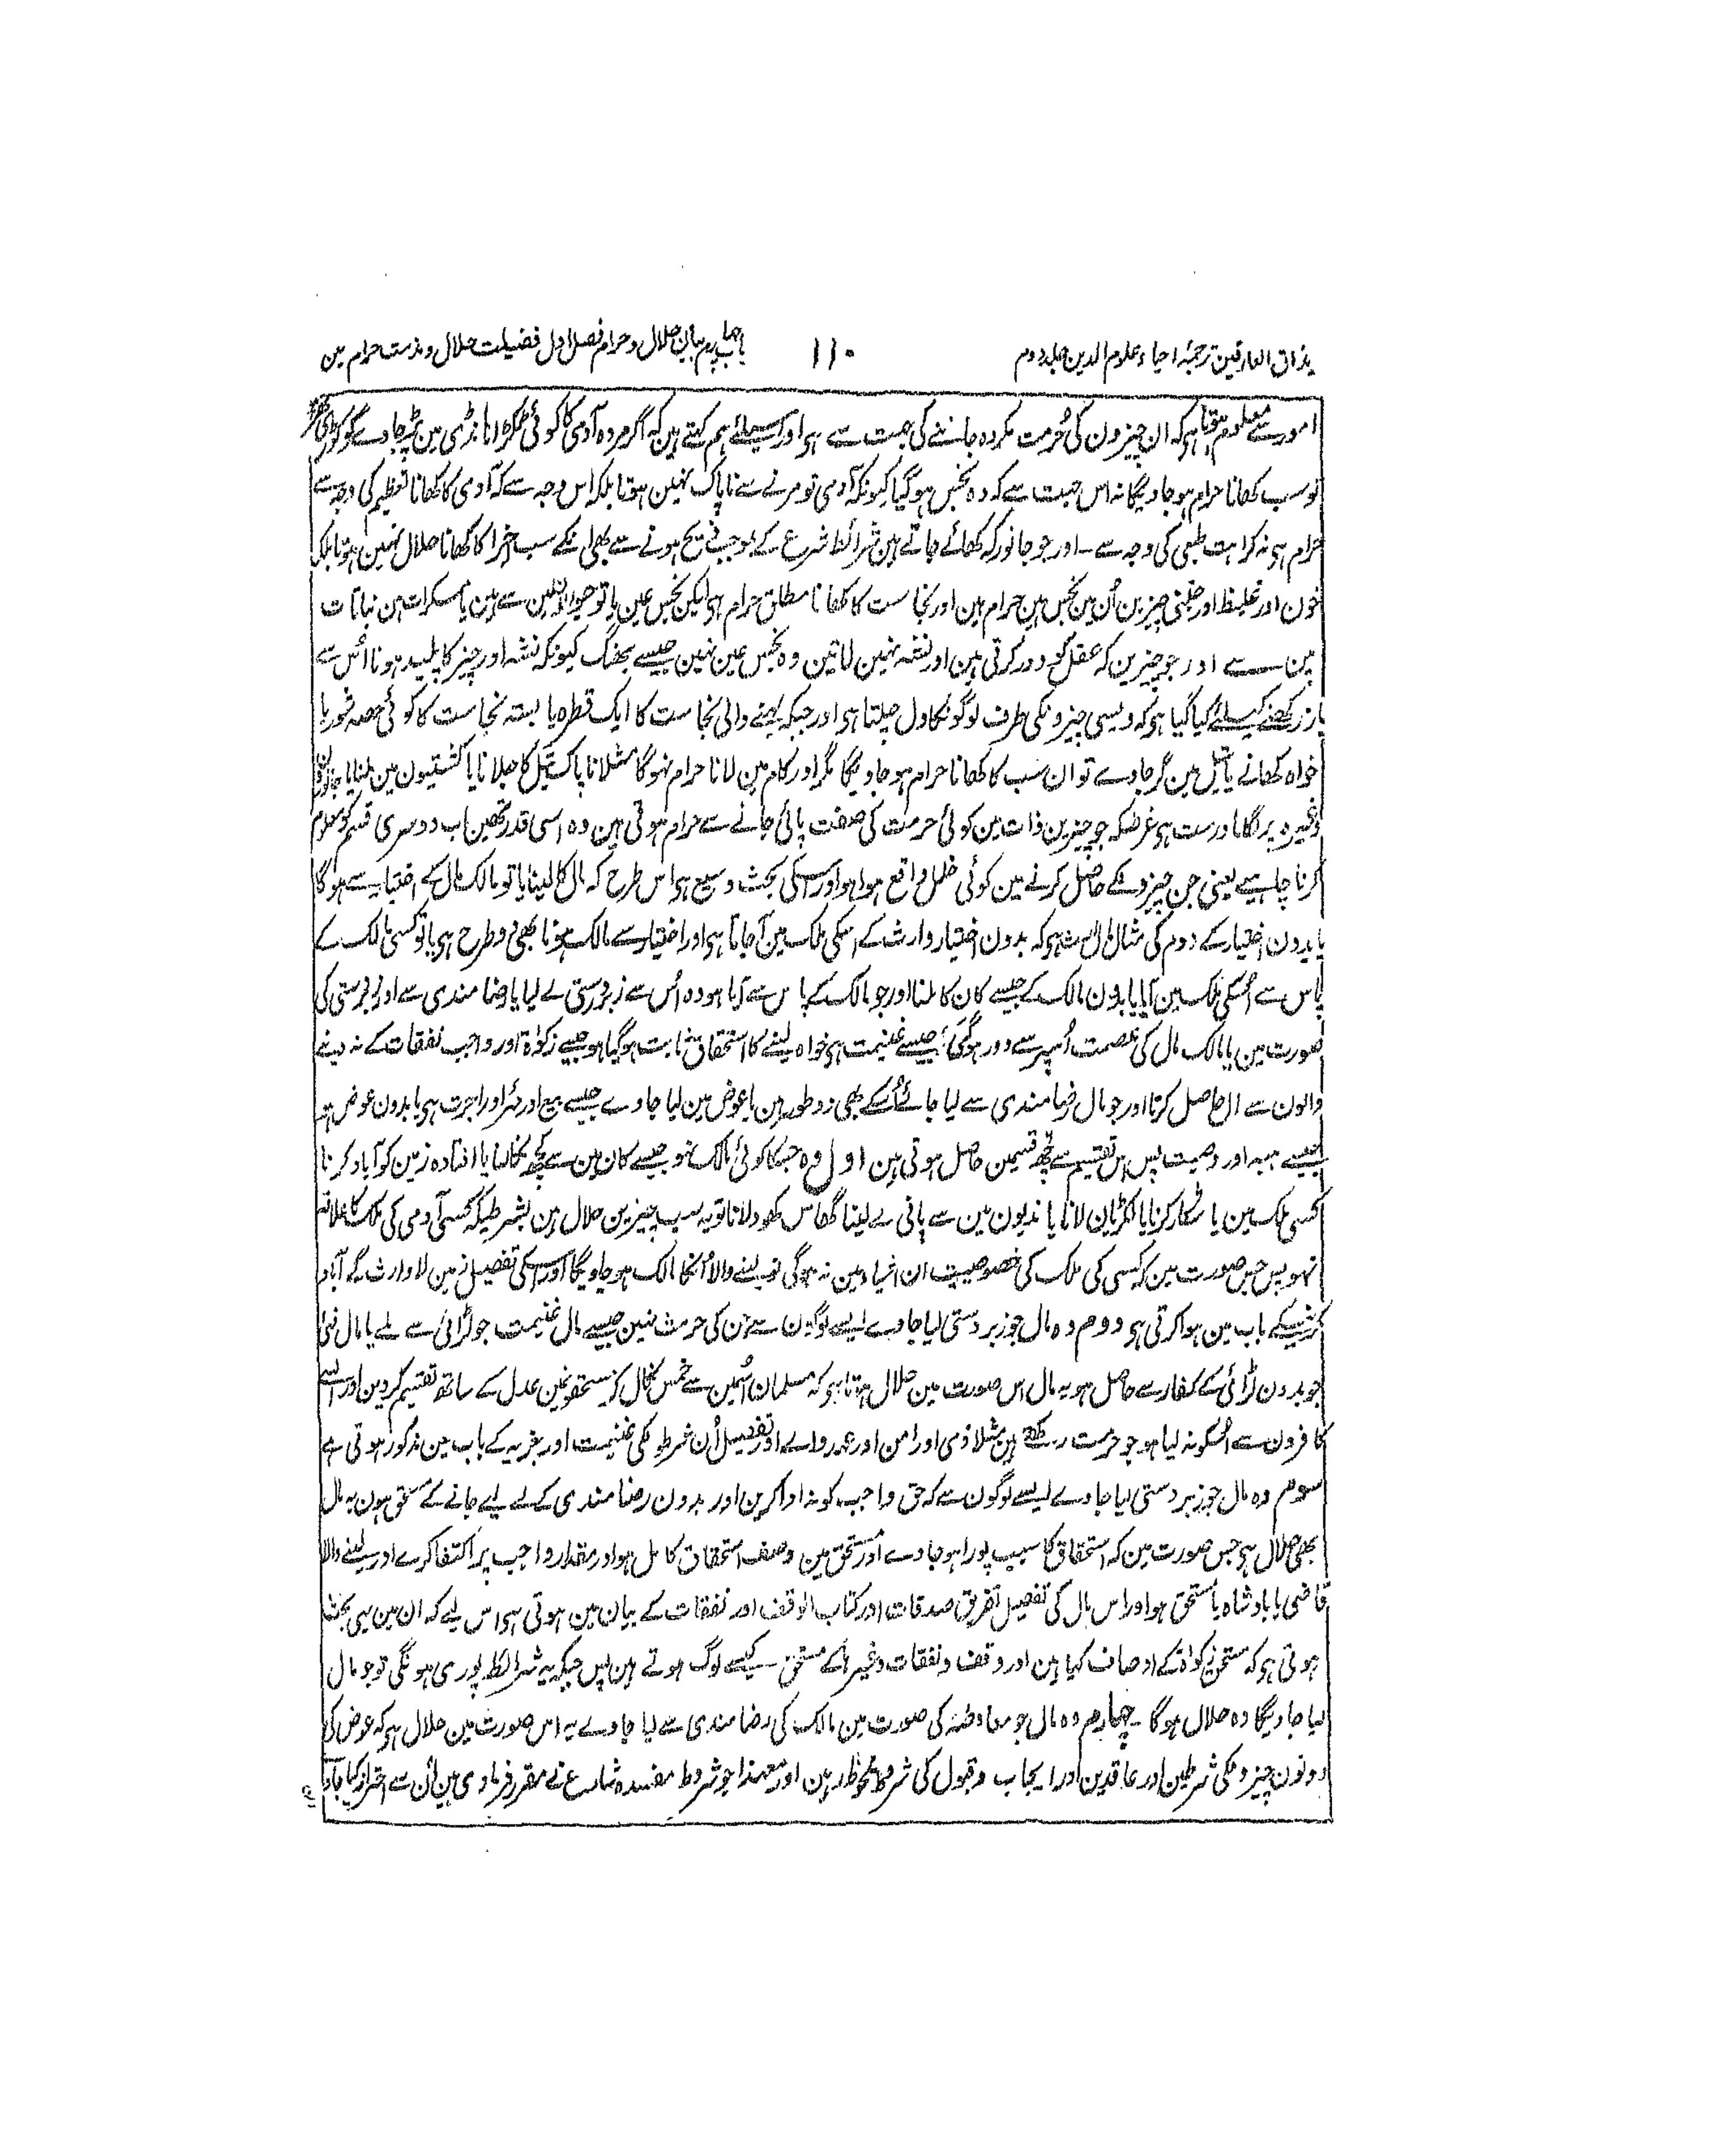 مذاق العارفین ترجمۂ احیاء علوم الدین جلد دوم
۱۱۰
باب چہارم بیان حلال و حرام فصل اول فضیلت حلال و مذمت حرام مین
امور سے معلوم ہوتا ہی کہ ان چیزون کی حُرمت مکروہ جاننے کی جہت سے ہی اور اسیلئے ہم کہتے ہین کہ اگر مردہ آدمی کا کوئی ٹکڑا ہانڈی مین پڑ جاوے گو کوڑی بھر
تو سب کھانا حرام ہو جاویگا نہ اس جہت سے کہ وہ نجس ہو گیا کیونکہ آدمی تو مرنے سے ناپاک نہین ہوتا بلکہ اس وجہ سے کہ آدمی کا کھانا تعظیم کی وجہ سے
حرام ہی نہ کراہت طبعی کی وجہ سے ۔ اور جو جانور کہ کھائے جاتے ہین شرائط شرع کے بموجب ذبح ہونے سے بھی انکے سب اجزا کا کھانا حلال نہین ہوتا بلکہ
خون اور غلیظ اور جتنی چیزین اُن مین نجس ہین حرام ہین اور نجاست کا کھانا مطلق حرام ہی لیکن نجس عین یا تو حیوانون مین سے ہین یا مسکرات ہین نباتات
مین سے اور جو چیزین کہ عقل کو دور کرتی ہین اور نشہ نہین لاتین وہ نجس عین نہین جیسے بھنگ کیونکہ نشہ آور چیز کا پلید ہونا اُس سے
باز رکھنے کے لئے کیا گیا ہی کہ ویسی چیزونکی طرف لوگونکا دل چلتا ہی اور جبکہ بہنے والی نجاست کا ایک قطرہ یا بستہ نجاست کا کوئی حصہ شوربا
خواہ کھانے یا تیل مین گر جاوے تو ان سب کا کھانا حرام ہو جاویگا مگر اور کام مین لانا حرام نہوگا مثلا ناپاک تیل کا جلانا یا کشتیون مین ملنا یا جانورون
وغیرہ پر لگانا درست ہی غرضکہ جو چیزین ذات مین کوئی حرمت کی صفت پائی جانے سے حرام ہوتی ہین وہ اسی قدر تھین اب دوسری قسم کو معلوم
کرنا چاہیے یعنی جن چیزونکے حاصل کرنے مین کوئی خلل واقع ہوا ہو اور اسکی بحث وسیع ہی اس طرح کہ مال کا لینا یا تو مالک مال کے اختیار سے ہوگا
یا بدون اختیار کے دوم کی مثال مال ارث ہی کہ بدون اختیار وارث کے اسکی ملک مین آجاتا ہی اور اختیار سے مالک ہونا بھی دو طرح ہی یا تو کسی مالک کے
پاس سے اُسکی ملک مین آیا یا بدون مالک کے جیسے کان کا ملنا اور جو مالک کے پاس سے آیا ہو وہ اُس سے زبردستی لے لیا یا رضامندی سے اور زبردستی کی
صورت مین یا مالک مال کی عصمت اُسپر سے دور ہو گئی جیسے غنیمت ہی خواہ لینے کا استحقاق ثابت ہو گیا ہو جیسے زکوٰۃ اور واجب نفقات کے نہ دینے
والون سے مال حاصل کرنا اور جو مال رضامندی سے لیا جائے اُسکے بھی دو طور ہین یا عوض مین لیا جاوے جیسے بیع اور مہر اور اجرت ہی یا بدون عوض ہو
جیسے ہبہ اور وصیت پس اس تقسیم سے چھ قسمین حاصل ہوتی ہین اول وہ جسکا کوئی مالک نہو جیسے کان مین سے کچھ نکالنا یا افتادہ زمین کو آباد کرنا
کسی ملک مین یا شکار کرنا یا لکڑیان لانا یا ندیون مین سے پانی لے لینا گھاس کھود لانا تو یہ سب چیزین حلال ہین بشرطیکہ کسی آدمی کی ملک کا علاقہ
نہو پس جس صورت مین کہ کسی کی ملک کی خصوصیت ان اشیاء مین نہ ہوگی تو لینے والا اُنکا مالک ہو جاویگا اور اسکی تفصیل زمین لا وارث کے آباد
کرنیکے باب مین ہوا کرتی ہی دوم وہ مال جو زبردستی لیا جاوے ایسے لوگون سے جن کی حرمت نہین جیسے مال غنیمت جو لڑائی سے ملے یا مال فئ
جو بدون لڑائی کے کفار سے حاصل ہو یہ مال اس صورت مین حلال ہوتا ہی کہ مسلمان اُسمین سے خمس نکال کر مستحقونمین عدل کے ساتھ تقسیم کر دین اور ایسے
کافرون سے اُسکو نہ لیا ہو جو حرمت رکھتے ہین مثلا ذمی اور امن اور عہد والے اور تفصیل اُن شرطونکی غنیمت اور جزیہ کے باب مین مذکور ہوتی ہے
سوم وہ مال جو زبردستی لیا جاوے ایسے لوگون سے کہ حق واجب کو نہ ادا کرین اور بدون رضامندی کے لے لیے جانے کے مستحق ہون یہ مال
بھی حلال ہی جس صورت مین کہ استحقاق کا سبب پورا ہو جاوے اور مستحق مین وصف استحقاق کامل ہو اور مقدار واجب پر اکتفا کرے اور لینے والا
قاضی یا بادشاہ یا مستحق ہو اور اس مال کی تفصیل تفریق صدقات اور کتاب الوقف اور نفقات کے بیان مین ہوتی ہی اس لیے کہ ان مین یہی بحث
ہوتی ہی کہ مستحق زکوٰۃ کے اوصاف کیا ہین اور وقف و نفقات وغیرہ کے مستحق کیسے لوگ ہوتے ہین پس جبکہ یہ شرائط پوری ہونگی تو جو مال
لیا جاویگا وہ حلال ہوگا ۔ چہارم وہ مال جو معاوضہ کی صورت مین مالک کی رضامندی سے لیا جاوے یہ اس صورت مین حلال ہی کہ عوض کی
دونون چیزونکی شرطین اور عاقدین اور ایجاب و قبول کی شروط ملحوظ رہین اور معہذا جو شروط مفسدہ شارع نے مقرر فرمادی ہین اُن سے احتراز کیا جاوے